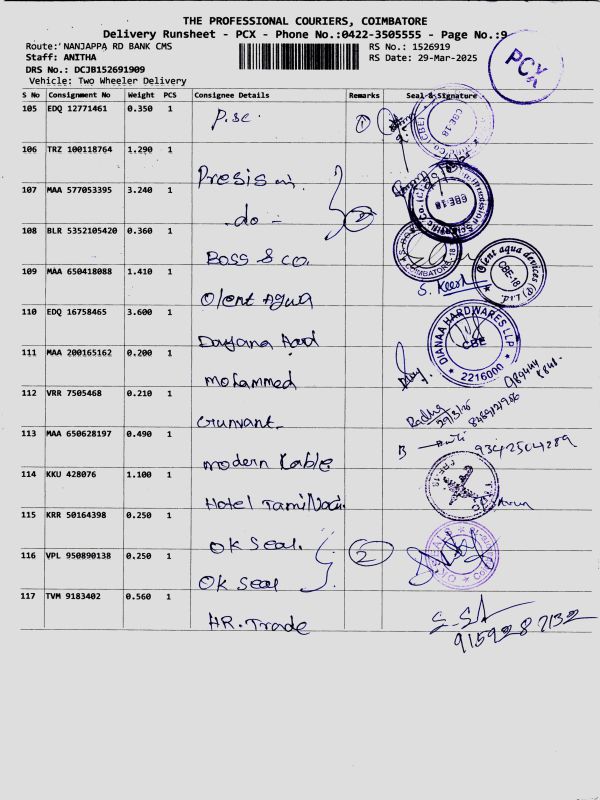 THE PROFESSIONAL COURIERS, COIMBATORE
Delivery Runsheet - PCX - Phone No.:0422-3505555 - Page No.:9
Route: NANJAPPA RD BANK CMS RS No.: 1526919
Staff: ANITHA RS Date: 29-Mar-2025
DRS No.: DCJB152691909
Vehicle: Two Wheeler Delivery
PCX
S No Consignment No Weight PCS Consignee Details Remarks Seal & Signature
105 EDQ 12771461 0.350 1 P.sc. 1
CBE-18
106 TRZ 100118764 1.290 1 Presision
107 MAA 577053395 3.240 1 - do - 2
CBE-18
108 BLR 5352105420 0.360 1 Boss & co.
COIMBATORE-18
109 MAA 650418088 1.410 1 Olent Aqua
S. Keerth
Olent aqua devices (P) Ltd.
CBE-18
110 EDQ 16758465 3.600 1 Dayana Hard
DIANAA HARDWARES LLP
CBE
2216000
111 MAA 200165162 0.200 1 mohammed
112 VRR 7505468 0.210 1 Gunvant
Radha
29/3/25
8489121906
113 MAA 650628197 0.490 1 modern Kable
9342504289
114 KKU 428076 1.100 1 Hotel TamilNadu
115 KRR 50164398 0.250 1 OK Seal.
116 VPL 950890138 0.250 1 OK Seal 2
OK SEALS
117 TVM 9183402 0.560 1 HR. Trade
9159287132